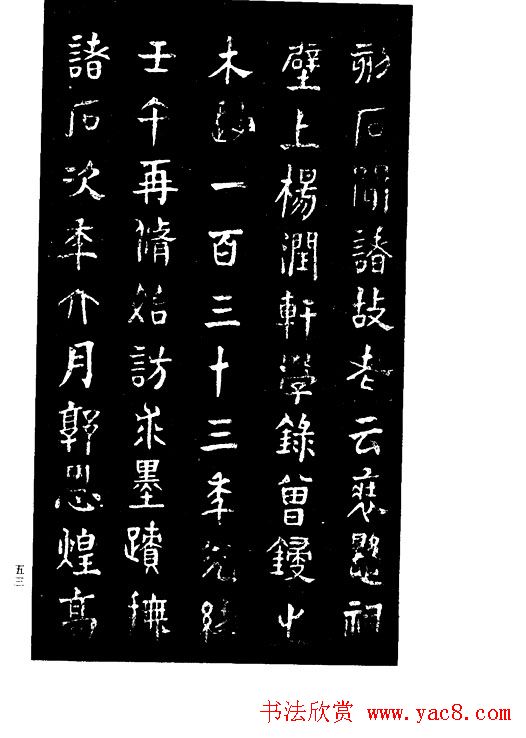 石聞諸故老云愍祠
壁上楊潤軒學錄曾鋟之
木越一百三十三年光緒
壬午再脩始訪求墨蹟橅
諸石次年六月郭恩煌
五三
书法欣赏 www.yac8.com